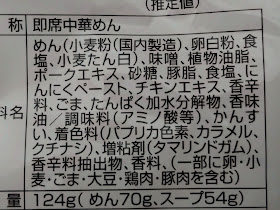 (推定値)
称 即席中華めん
めん(小麦粉(国内製造)、卵白粉、食
塩、小麦たん白)、味噌、植物油脂、
ポークエキス、砂糖、豚脂、食塩、に
んにくペースト、チキンエキス、香辛
料名 料、ごま、たんぱく加水分解物、香味
油/調味料(アミノ酸等)、かんす
い、着色料(パプリカ色素、カラメル、
クチナシ)、増粘剤(タマリンドガム)、
香辛料抽出物、香料、(一部に卵・小
麦・ごま・大豆・鶏肉・豚肉を含む)
量 124g(めん70g、スープ54g)